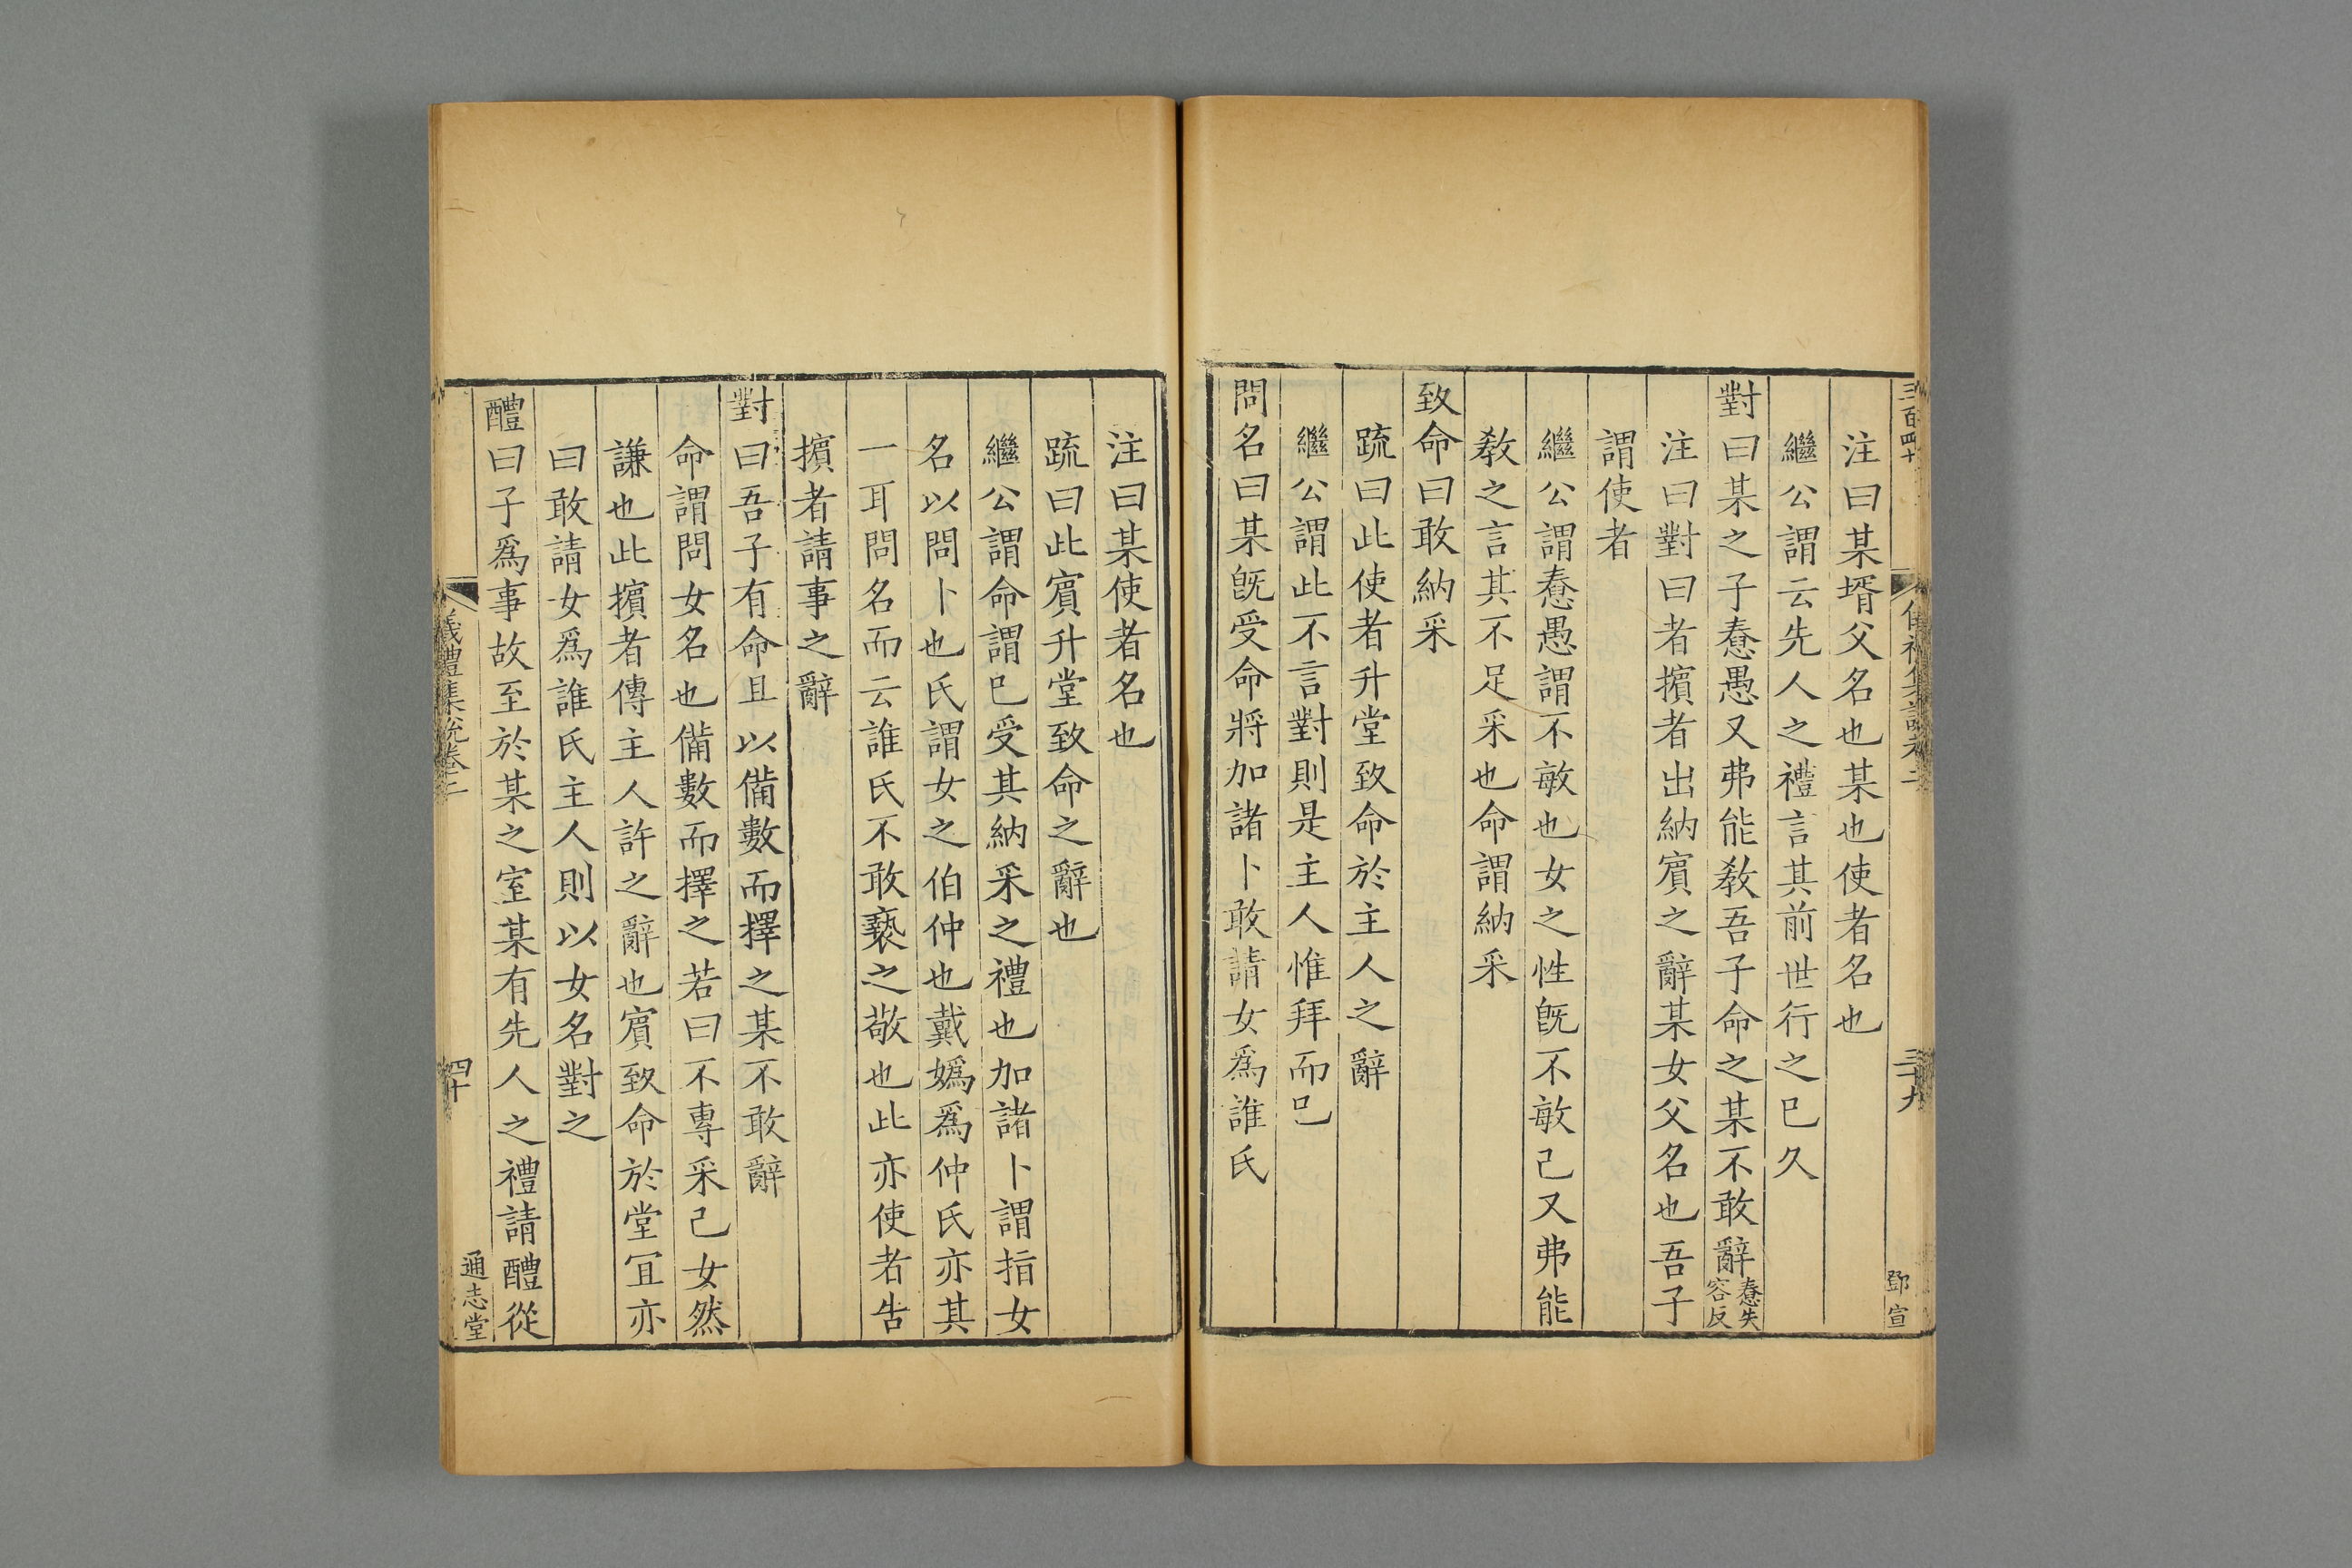 三百四十
儀禮集說卷二
三十九
鄧宣
注曰某壻父名也某也使者名也
繼公謂云先人之禮言其前世行之已久
對曰某之子惷愚又弗能教吾子命之某不敢辭惷失容反
注曰對曰者擯者出納賓之辭某女父名也吾子
謂使者
繼公謂惷愚謂不敏也女之性旣不敏己又弗能
教之言其不足采也命謂納采
致命曰敢納采
疏曰此使者升堂致命於主人之辭
繼公謂此不言對則是主人惟拜而已
問名曰某旣受命將加諸卜敢請女爲誰氏
注曰某使者名也
疏曰此賓升堂致命之辭也
繼公謂命謂已受其納采之禮也加諸卜謂指女
名以問卜也氏謂女之伯仲也戴嬀爲仲氏亦其
一耳問名而云誰氏不敢褻之敬也此亦使者告
擯者請事之辭
對曰吾子有命且以備數而擇之某不敢辭
命謂問女名也備數而擇之若曰不專采己女然
謙也此擯者傳主人許之辭也賓致命於堂宜亦
曰敢請女爲誰氏主人則以女名對之
醴曰子爲事故至於某之室某有先人之禮請醴從
儀禮集說卷二
四十
通志堂